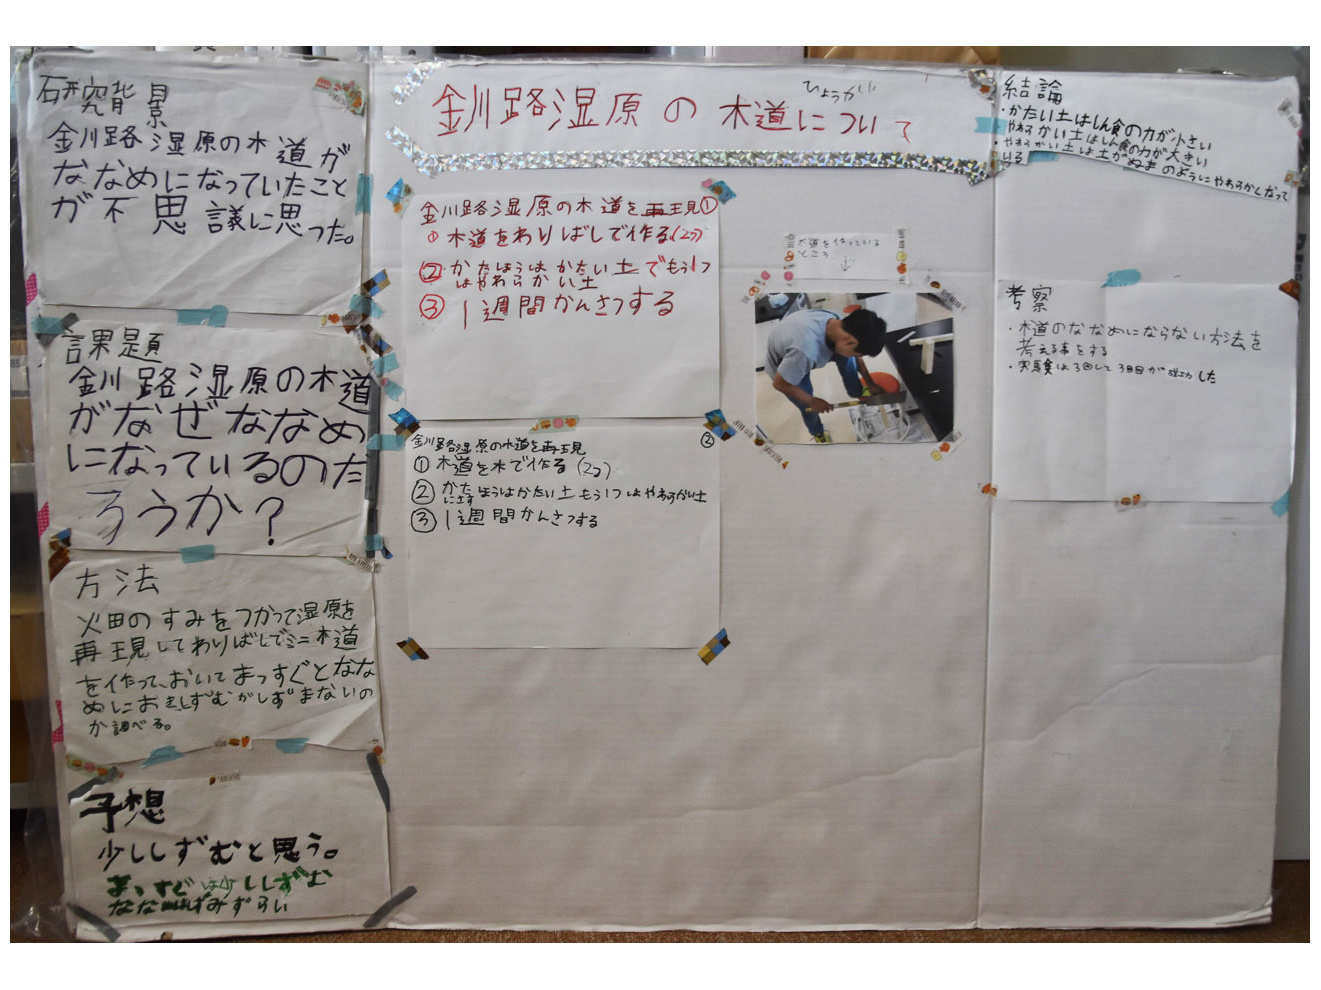 釧路湿原の木道について
ひょうかい
研究背景
釧路湿原の木道が
ななめになっていたこと
が不思議に思った。
課題
釧路湿原の木道
がなぜななめ
になっているのだ
ろうか?
方法
畑のすみをつかって湿原を
再現してわりばしでミニ木道
を作って、おいてまっすぐとなな
めにおきしずむかしずまないの
か調べる。
予想
少ししずむと思う。
まっすぐは少ししずむ
ななめはみずらい
釧路湿原の木道を再現①
① 木道をわりばしで作る(2つ)
② かたほうはかたい土でもう1つ
はやわらかい土
③ 1週間かんさつする
釧路湿原の木道を再現 ②
① 木道を木で作る(2つ)
② かたほうはかたい土もう1つはやわらかい土
にさす
③ 1週間かんさつする
木道を作っている
ところ
↓
結論
・かたい土はしん食の力が小さい
・やわらかい土はしん食の力が大きい
・やわらかい土は土がぬまのようにやわらかくなって
いる
考察
・木道のななめにならない方法を
考える事をする
・実験は3回して3回目が成功した